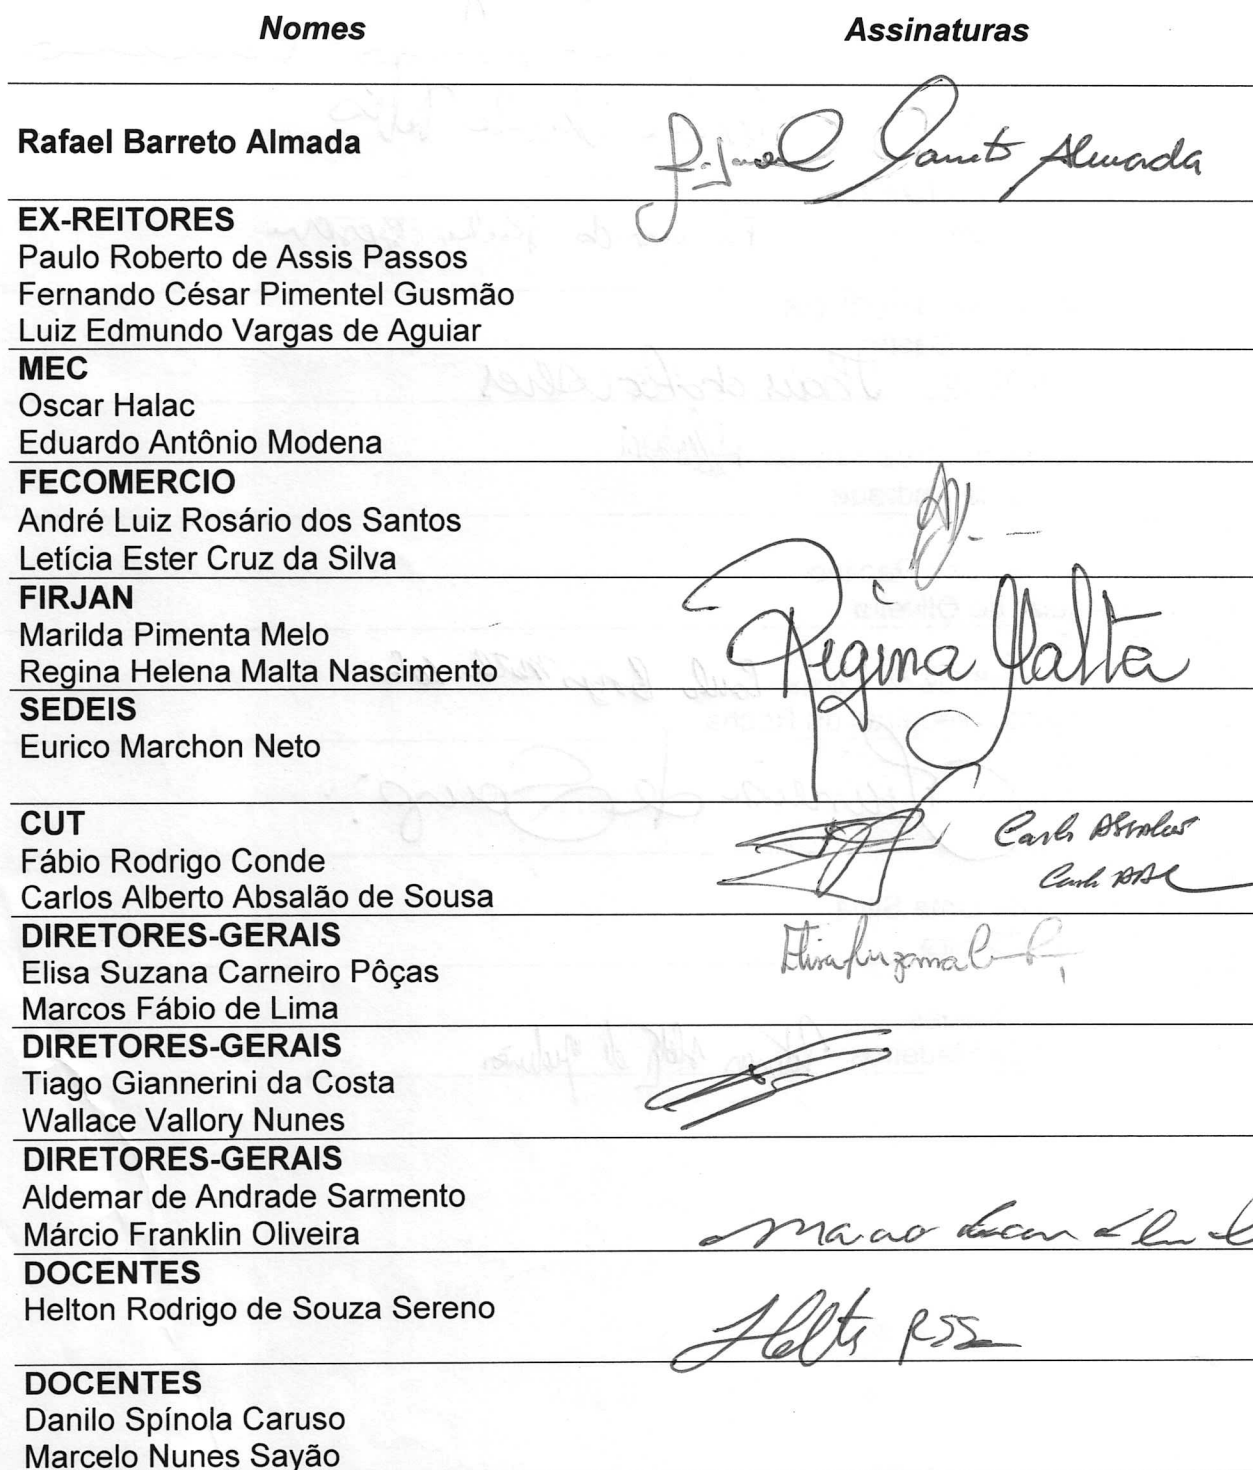 Nomes Assinaturas
Rafael Barreto Almada
Barreto Almada
EX-REITORES
Paulo Roberto de Assis Passos
Fernando César Pimentel Gusmão
Luiz Edmundo Vargas de Aguiar
MEC
Oscar Halac
Eduardo Antônio Modena
FECOMERCIO
André Luiz Rosário dos Santos
Letícia Ester Cruz da Silva
FIRJAN
Marilda Pimenta Melo
Regina Malta
Regina Helena Malta Nascimento
SEDEIS
Eurico Marchon Neto
CUT
Fábio Rodrigo Conde
Carlos Alberto Absalão de Sousa
DIRETORES-GERAIS
Elisa Suzana Carneiro Pôças
Marcos Fábio de Lima
DIRETORES-GERAIS
Tiago Giannerini da Costa
Wallace Vallory Nunes
DIRETORES-GERAIS
Aldemar de Andrade Sarmento
Márcio Franklin Oliveira
DOCENTES
Helton Rodrigo de Souza Sereno
DOCENTES
Danilo Spínola Caruso
Marcelo Nunes Sayão